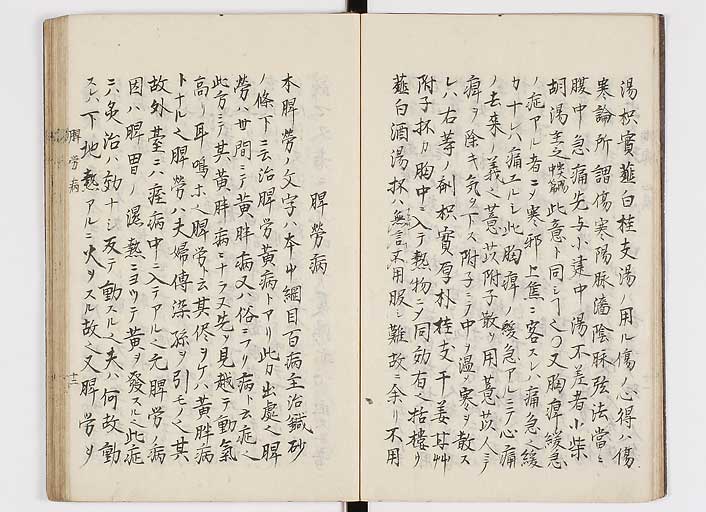 湯枳實薤白桂支湯ノ用ル傷ノ心得ハ傷
寒論所謂傷寒陽脉濇陰脉弦法當ニ
腹中急痛先与小建中湯不差者小柴
胡湯主之此意ト同シ〇又胸痺緩急
ノ症アル者ニタ寒邪上焦ニ客スレハ痛急之緩
ノ去来ノ義之薏苡附子散ヲ用薏苡人ニテ
痺ヲ除キ気ヲ下ス附子ニテ中ヲ温ヲ寒ヲ散ス
カナレハ痛エルシ此胸痺ノ緩急アルニテ心痛
レハ右等ノ剤枳實厚朴桂支干姜甘艸
附子抔カ胸中ニ入テ熱物ニタ同効有之括楼ヨリ
薤白酒湯抔ハ無言不用服シ難故ニ余リ不用
脾勞病
本脾勞ノ文字ハ本艸綱目百病主治鍼砂
ノ條下ニ云治脾勞黄病トアリ此カ出處之脾
勞ハ世間ニテ黄胖病又ハ俗ニフリ病ト云症之
此方ニテ其黄胖病ニナラヌ先ヲ見越テ動氣
高ノ耳鳴ホ之脾労ト云其侭ヲケハ黄胖病
トナル之脾勞ハ夫婦傳染孫ヲ引モノ之其
故外臺ニハ痓病中ニ入テアル之元脾勞ノ病
因ハ脾胃ノ濕熱ニヨツテ黄ヲ發スル之此症
ニハ灸治ハ効ナシ反テ動スル之夫ハ何故動
スレハ下地熱アルニ火ヲスル故之又脾労ヲ
脾労病